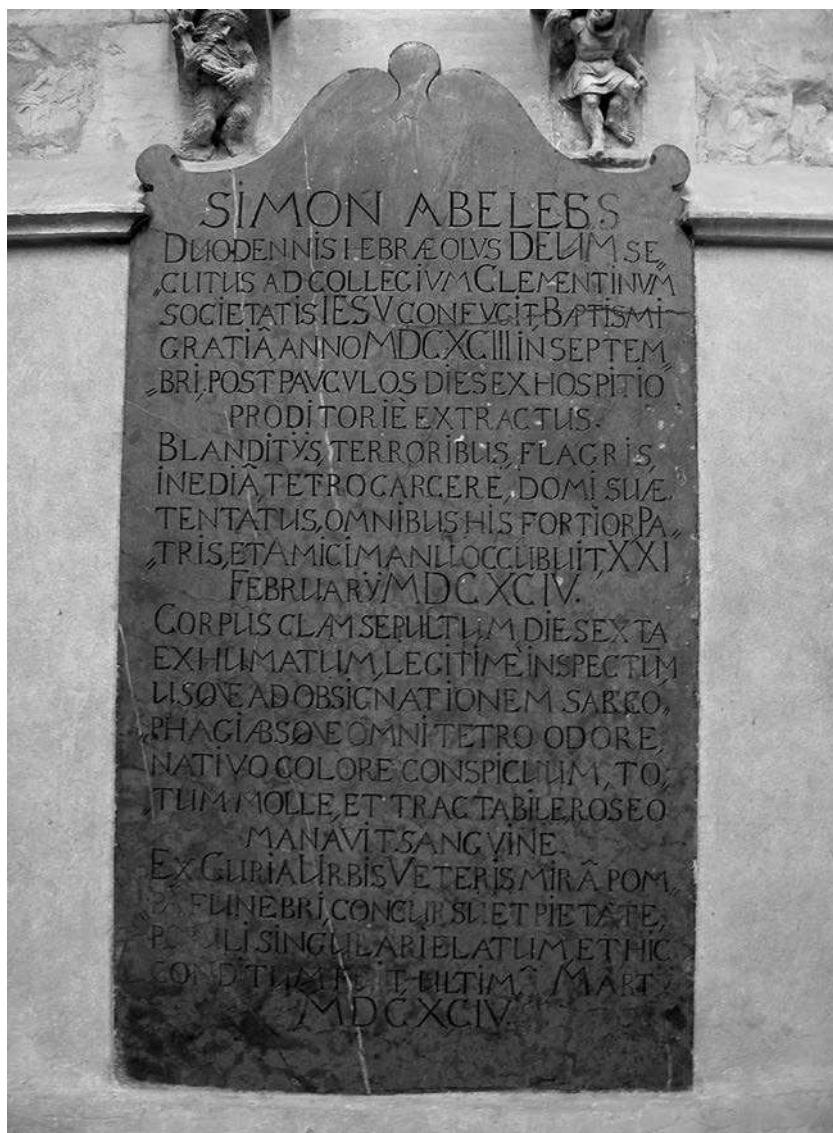 SIMON ABELES
DUODENNIS HEBRÆOLVS DEUM SE„
„CUTUS AD COLLEGIVM CLEMENTINVM
SOCIETATIS IESV CONFVGIT, BAPTISMI
GRATIÂ, ANNO MDCXCIII IN SEPTEM„
„BRI, POST PAVCVLOS DIES EX HOSPITIO
PRODITORIÈ EXTRACTUS.
BLANDITŸS, TERRORIBUS, FLAGRIS,
INEDIÂ, TETRO CARCERE, DOMI SUÆ
TENTATUS, OMNIBUS HIS FORTIOR PA„
„TRIS, ET AMICI MANU OCCUBUIT, XXI
FEBRUARŸ MDCXCIV.
CORPUS CLAM SEPULTUM, DIE SEXTA
EXHUMATUM, LEGITIMÈ INSPECTŪM
USQVE AD OBSIGNATIONEM SARCO„
„PHAGI ABSQVE OMNI TETRO ODORE,
NATIVO COLORE CONSPICUUM, TO„
„TUM MOLLE, ET TRACTABILE, ROSEO
MANAVIT SANGVINE.
EX CURIA URBIS VETERIS MIRÂ POM„
„PA FUNEBRI, CONCURSU ET PIETATE,
POPULI SINGULARI ELATUM, ET HIC
CONDITUM FUIT ULTIMÂ MART
MDCXCIV.